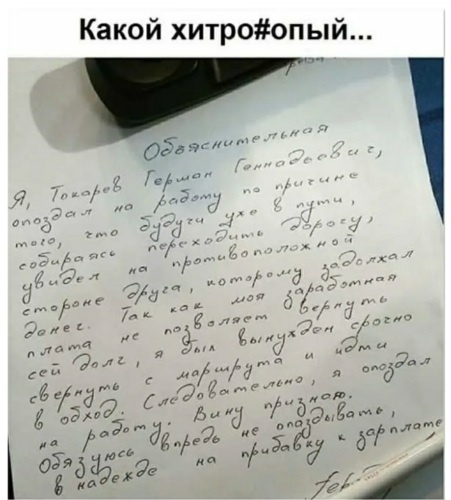 Какой хитро#опый...
Объяснительная
Я, Токарев Герман Геннадьевич,
опоздал на работу по причине
того, что будучи уже в пути,
собираясь переходить дорогу,
увидел на противоположной
стороне друга, которому задолжал
денег. Так как моя заработная
плата не позволяет вернуть
сей долг, я был вынужден срочно
свернуть с маршрута и идти
в обход. Следовательно, я опоздал
на работу. Вину признаю.
Обязуюсь впредь не опаздывать,
в надежде на прибавку к зарплате